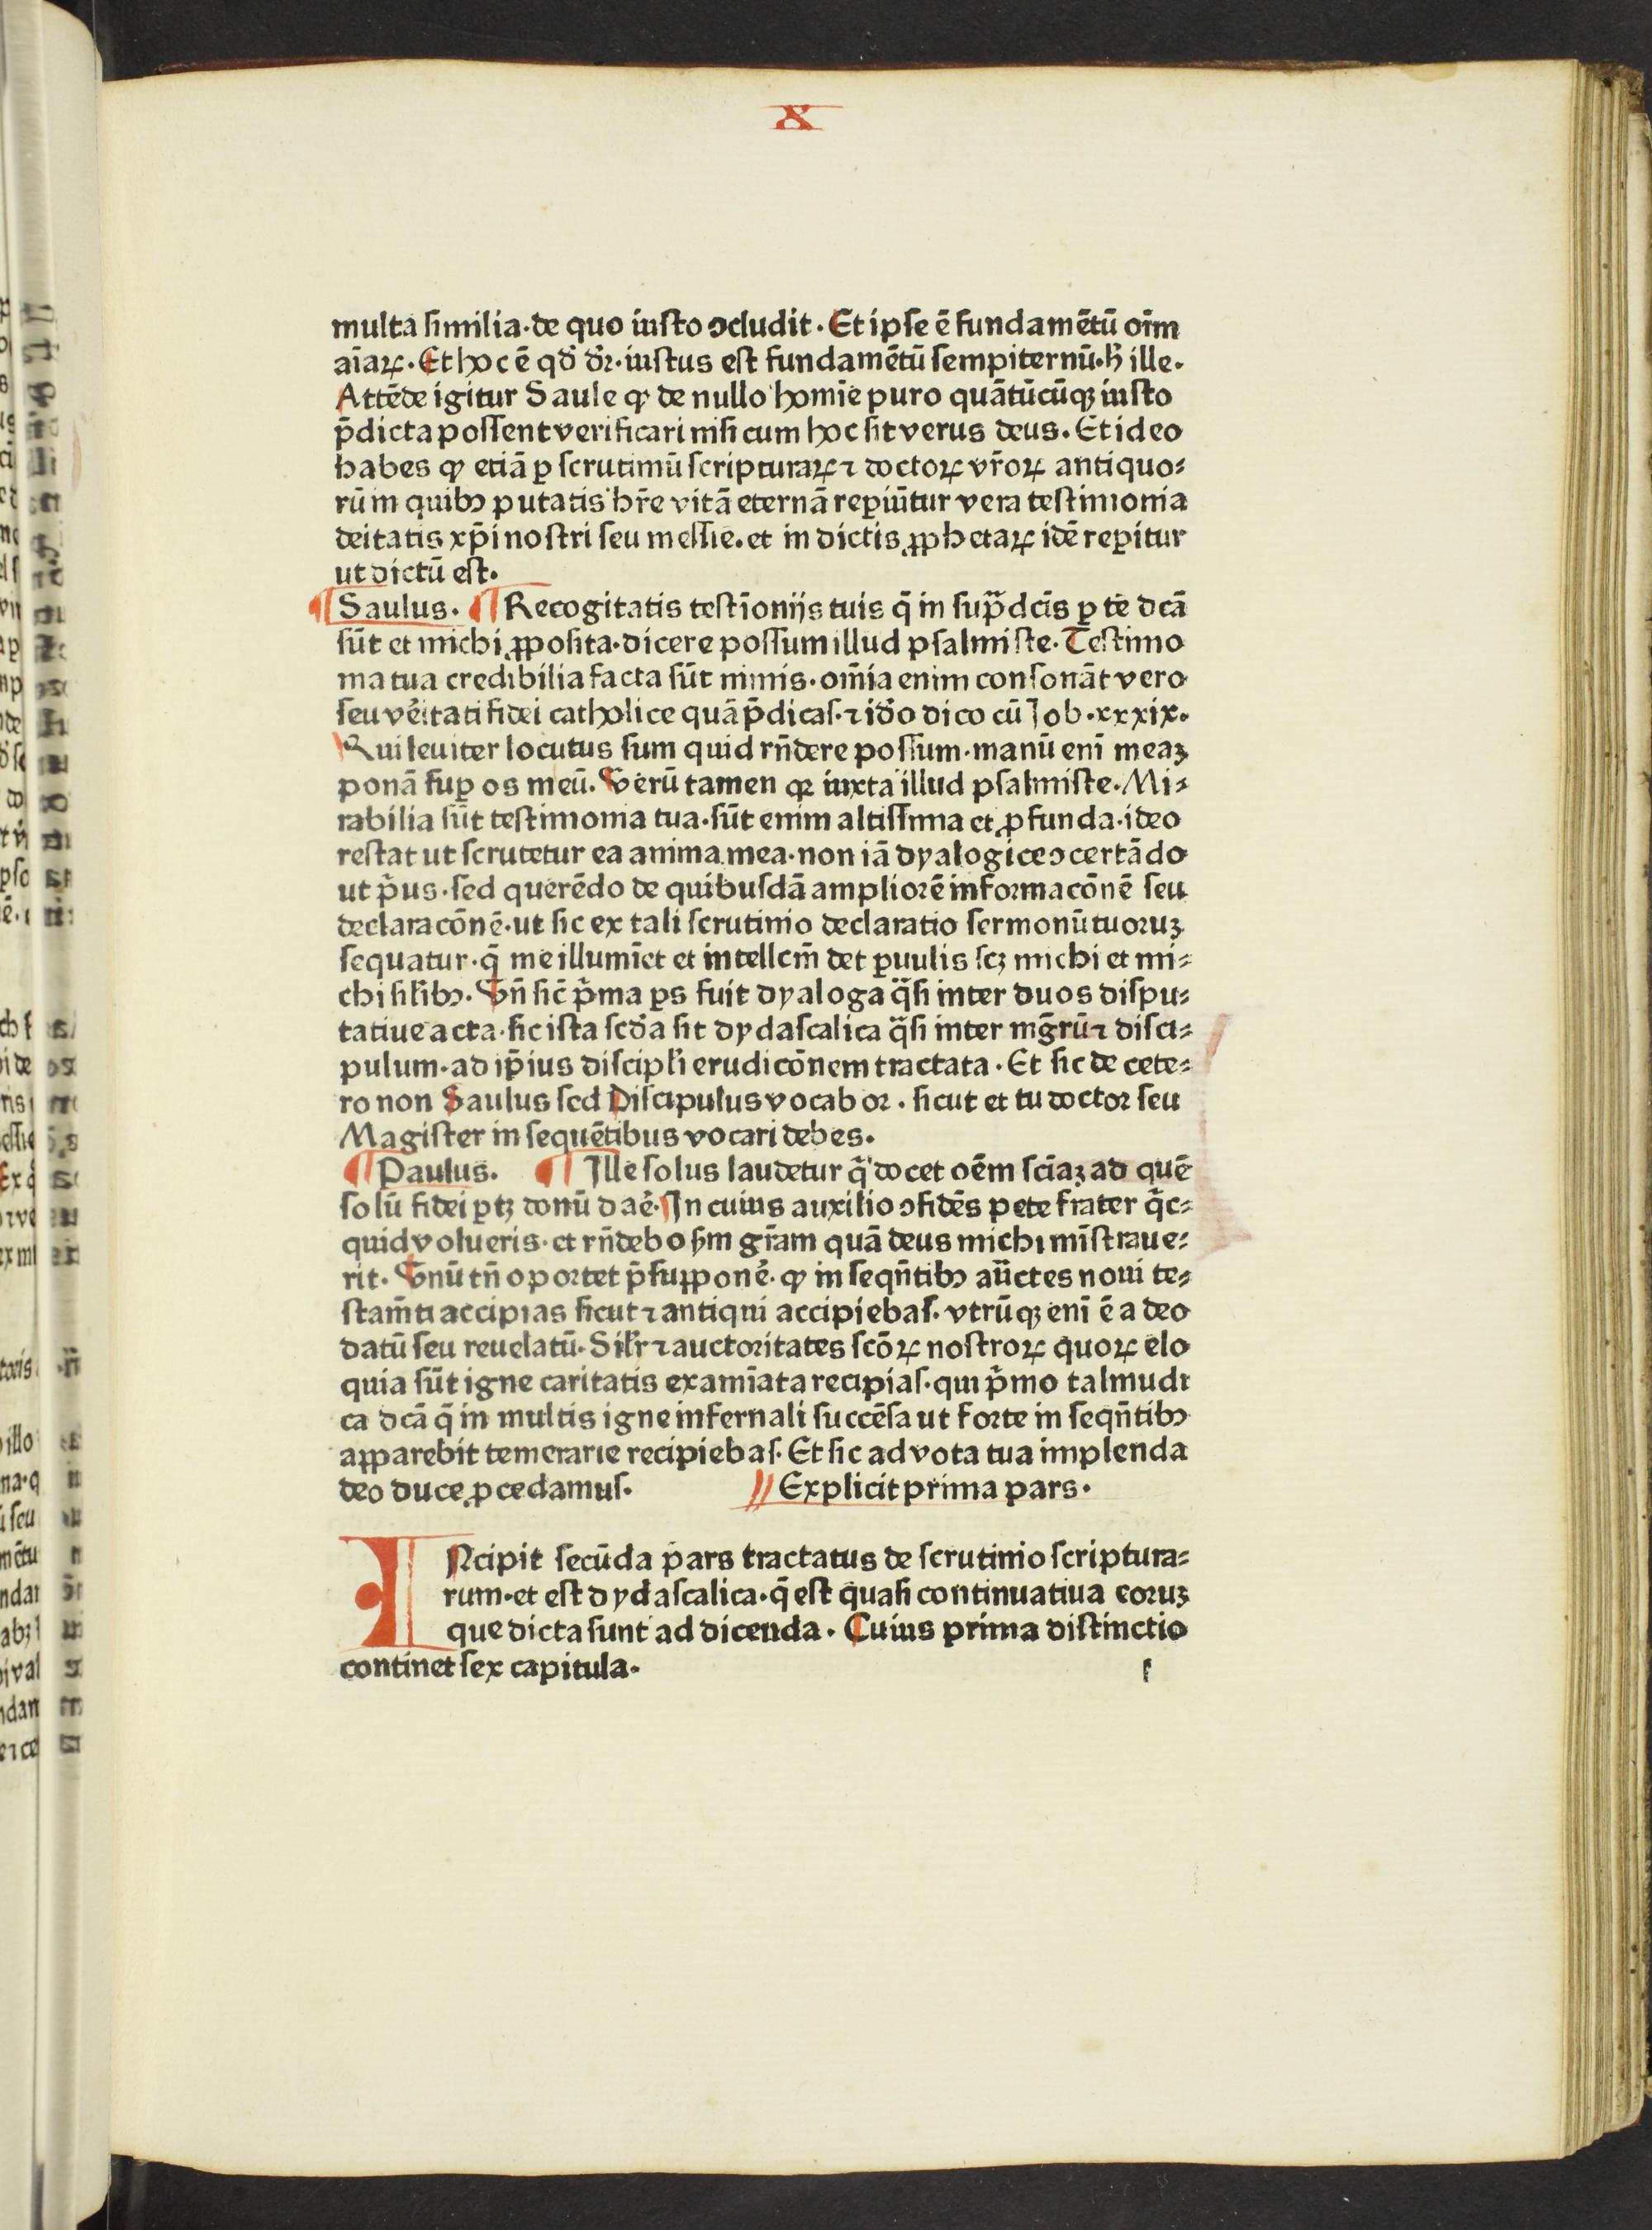 X
multa similia·de quo iusto ↄcludit·Et ipse ē fundamētū oīm
aīaꝝ·Et hoc ē qđ dr̄·iustus est fundamētū sempiternū·ħ ille·
Attēde igitur Saule ꝙ de nullo homīe puro quātūcūqꝫ iusto
p̄dicta possent verificari nisi cum hoc sit verus deus·Et ideo
habes ꝙ etiā ꝑ scrutiniū scripturaꝝ ⁊ doctoꝝ vr̄oꝝ antiquo⸗
rū in quibꝰ putatis hr̄e vitā eternā reꝑiūtur vera testimonia
deitatis xp̄i nostri seu messie·et in dictis ꝓphetaꝝ idē reꝑitur
ut dictū est·
¶ Saulus· ¶ Recogitatis testīoniis tuis q̄ in sup̄dcīs ꝑ te dcā
sūt et michi ꝓposita·dicere possum illud psalmiste·Testimo
nia tua credibilia facta sūt nimis·om̄ia enim consonāt vero
seu vẽitati fidei catholice quā p̄dicas·⁊ iđo dico cū Job·xxxix·
Qui leuiter locutus sum quid rn̄dere possum·manū enī meaꝫ
ponā suꝑ os meū·Verū tamen qꝛ iuxta illud psalmiste·Mi⸗
rabilia sūt testimonia tua·sūt enim altissima et ꝓfunda·ideo
restat ut scrutetur ea anima mea·non iā dyalogice ↄcertādo
ut p̄us·sed querēdo de quibusdā ampliorē informacōnē seu
declaracōnē·ut sic ex tali scrutinio declaratio sermonū tuoruꝫ
sequatur·q̄ me illumīet et intellcm̄ det ꝑuulis scꝫ michi et mi⸗
chi silībꝰ·Vn̄ sic̄ p̄ma ꝑs fuit dyaloga q̄si inter duos dispu⸗
tatiue acta·sic ista scđa sit dydascalica q̄si inter mḡrū ⁊ disci⸗
pulum·ad ip̄ius discipłi erudicōnem tractata·Et sic de cete⸗
ro non Saulus sed Discipulus vocabor·sicut et tu doctor seu
Magister in sequētibus vocari debes·
¶ Paulus· ¶ Ille solus laudetur q̄ docet oēm scīaꝫ ad quē
solū fidei ꝑtꝫ donū daẽ·In cuius auxilio ↄfidēs pete frater q̄c⸗
quid volueris·et rn̄debo ẜm gr̄am quā deus michi mīstraue⸗
rit·Vnū tn̄ oportet p̄suꝓponẽ·ꝙ in seqn̄tibꝰ aūctes noui te⸗
stam̄ti accipias sicut ⁊ antiqui accipiebas·vtrūqꝫ enī ē a deo
datū seu reuelatū·Silr̄ ⁊ auctoritates scōꝝ nostroꝝ quoꝝ elo
quia sūt igne caritatis examīata recipias·qui p̄mo talmudi
ca dcā q̄ in multis igne infernali succēsa ut forte in seqn̄tibꝰ
apparebit temerarie recipiebas·Et sic ad vota tua implenda
deo duce ꝓcedamus· // Explicit prima pars·
INcipit secūda pars tractatus de scrutinio scriptura⸗
rum·et est dydascalica·q̄ est quasi continuatiua eoruꝫ
que dicta sunt ad dicenda·Cuius prima distinctio
continet sex capitula·